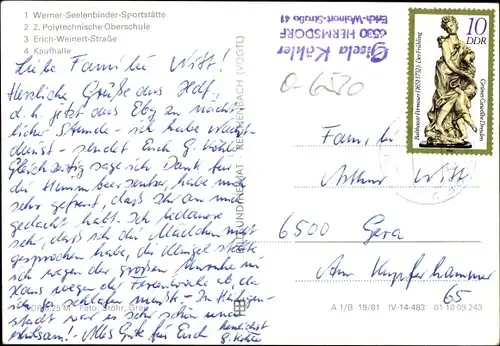 1 Werner-Seelenbinder-Sportstätte
2 2. Polytechnische Oberschule
3 Erich-Weinert-Straße
4 Kaufhalle
Liebe Familie Witt!
Herzliche Grüße aus Hdf,
d. h. jetzt aus Ebg zu nächt-
licher Stunde – ich habe Nacht-
dienst – sendet Euch G. Köhler
Gleichzeitig sage ich Dank für
die habe mich
sehr gefreut, daß Ihr an mich
gedacht habt. Ich bedaure
sehr, daß ich die Mädchen nicht
gesprochen habe, die Klingel stellte
ich wegen der großen Unruhe im
Haus wegen der Ferienwoche ab, da
ich ja schlafen mußte – In
stadt war es sehr schön und
Alles Gute für Euch herzlichst
G. Köhler
BILD UND HEIMAT REICHENBACH (VOGTL)
Foto: Stöhr, Greiz
Gisela Köhler
6530 HERMSDORF
Erich-Weinert-Straße 41
O-6530
10
DDR
Balthasar Permoser (1651-1732): Der Frühling
Grünes Gewölbe Dresden
Familie
Arthur Witt
6500 Gera
Am Kupferhammer
65
A 1/B 19/81 IV-14-483 01 10 09 243